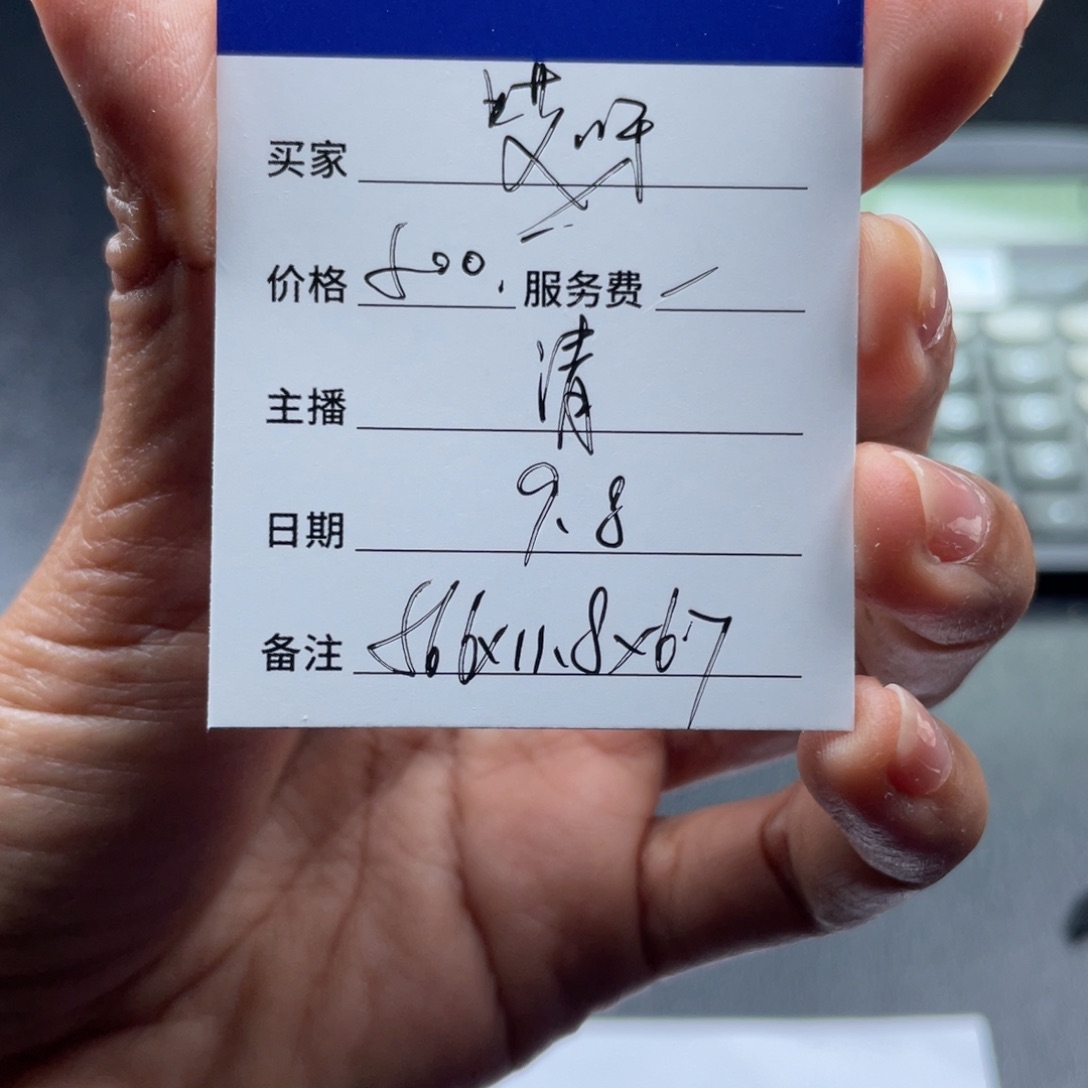 买家
价格 500. 服务费 /
主播 清
日期 9.8
备注 566x11.8x6.7